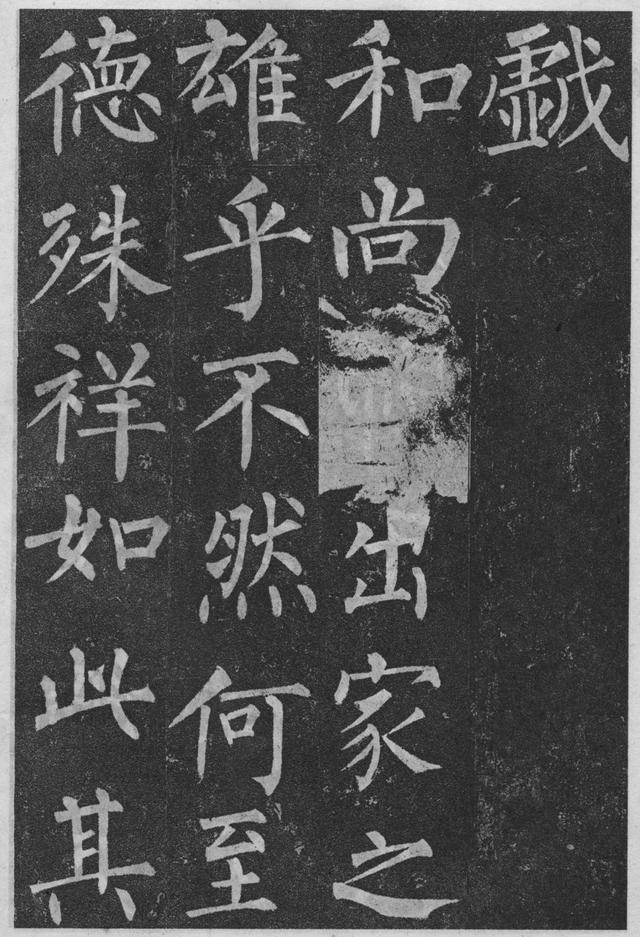 戱
和尚出家之
雄乎不然何至
德殊祥如此其